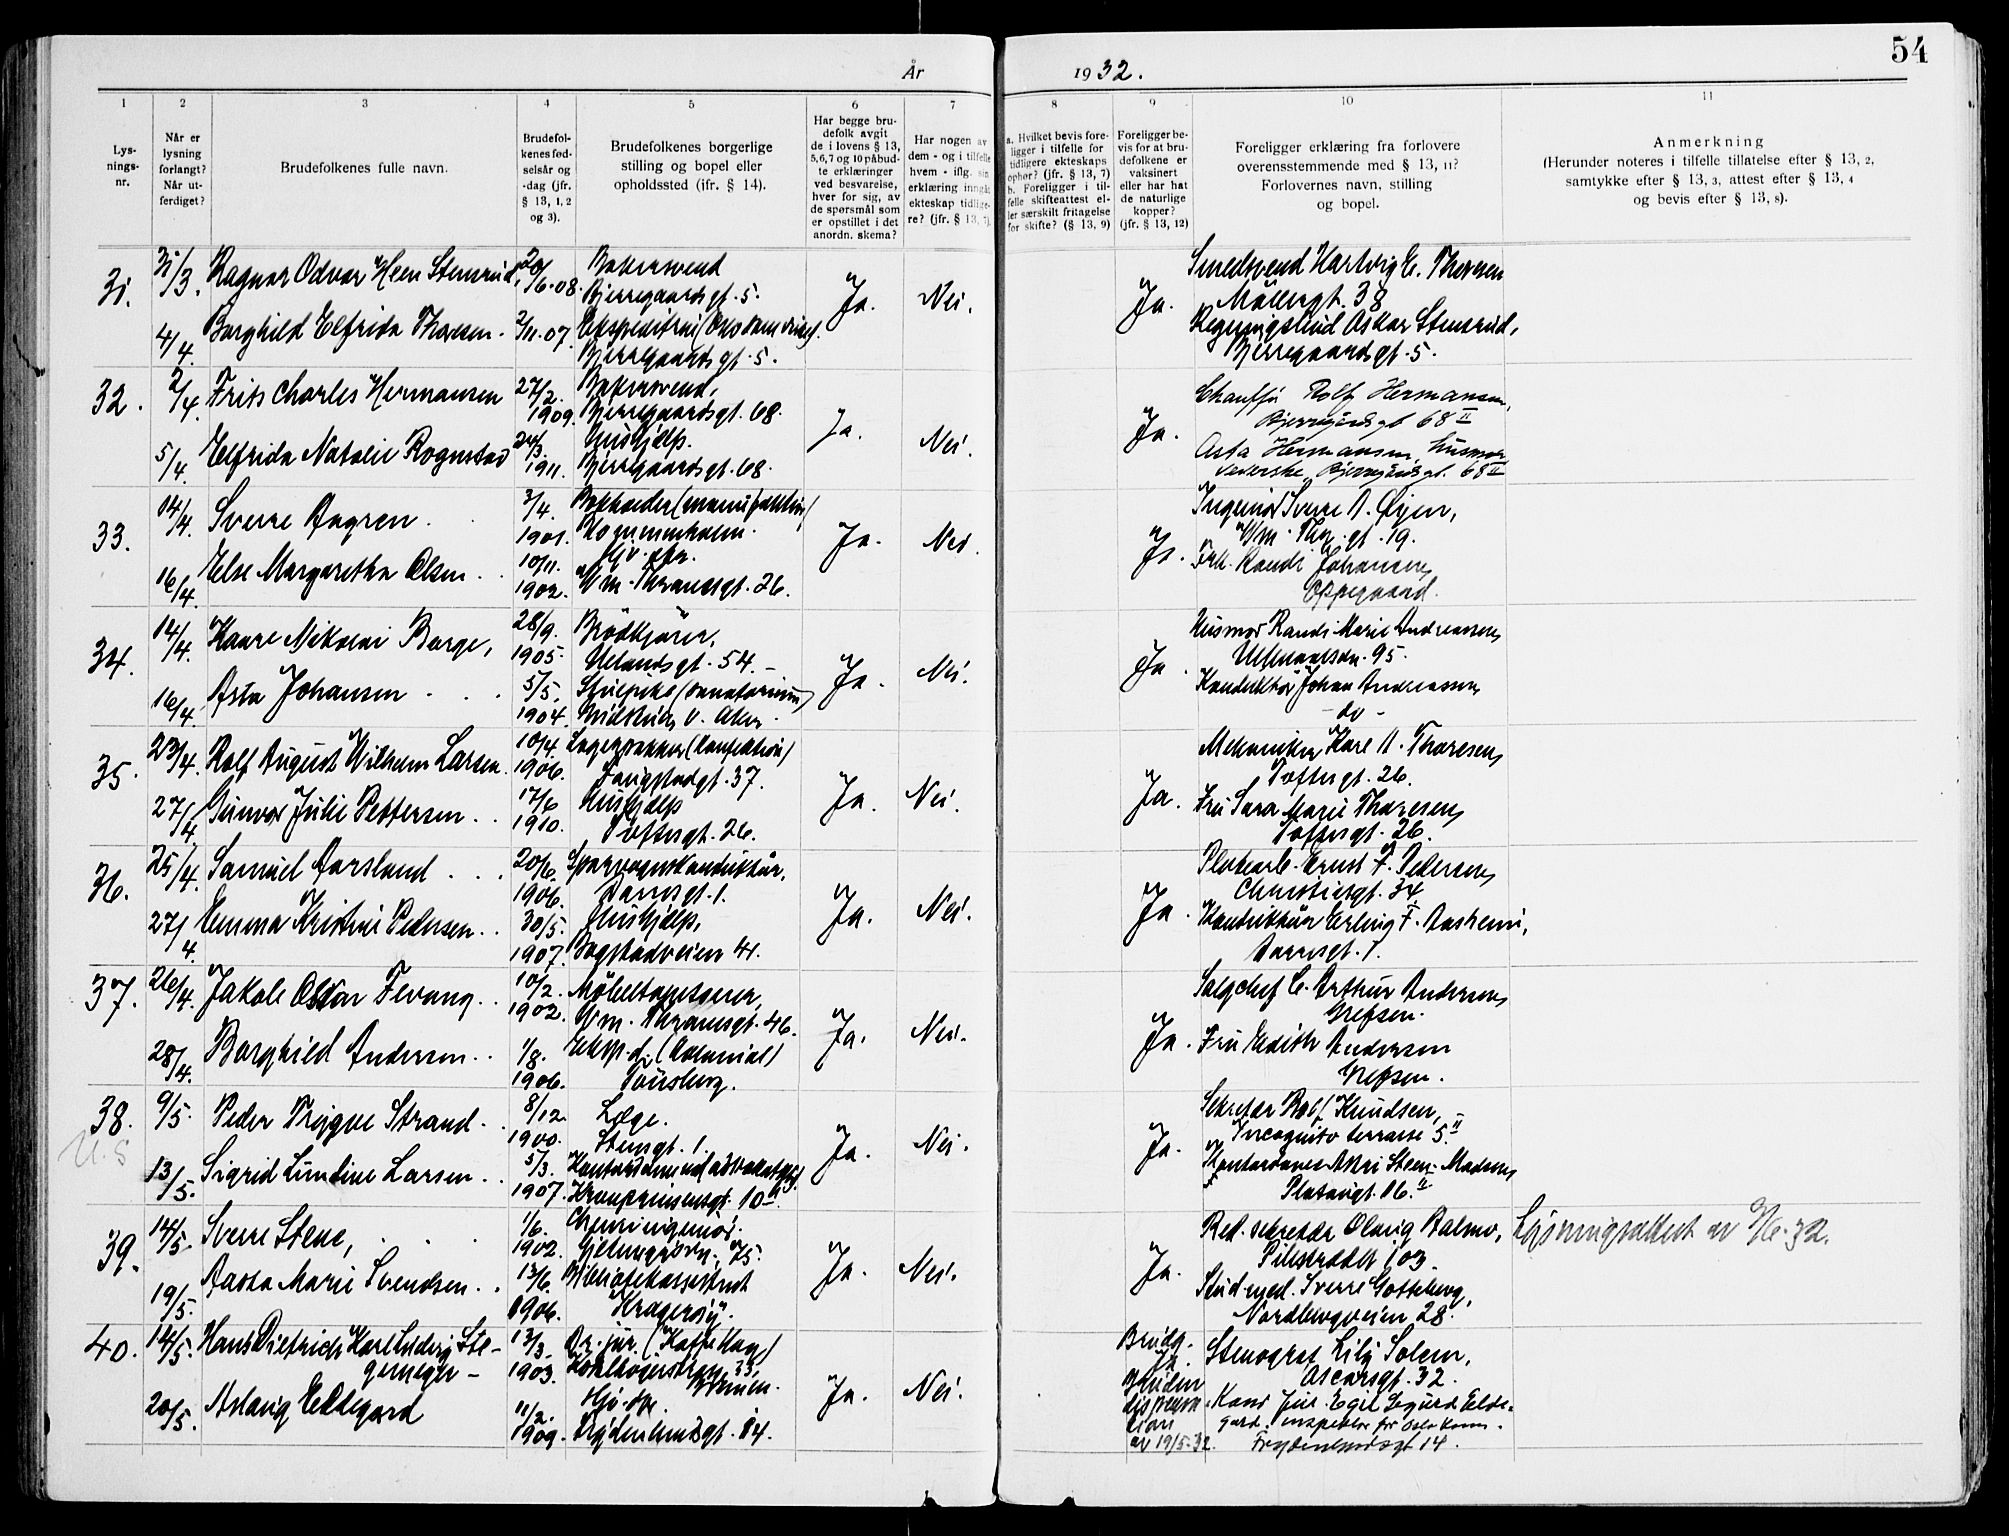 54
År 1932.
1
2
3
4
5
6
7
8
9
10
11
Lys-
nings-
nr.
Når er
lysning
forlangt?
Når ut-
ferdiget?
Brudefolkenes fulle navn.
Brudefol-
kenes fød-
selsår og
-dag (jfr.
§ 13, 1, 2
og 3).
Brudefolkenes borgerlige
stilling og bopel eller
opholdssted (ifr. § 14).
Har begge bru-
defolk avgit
de i lovens § 13,
5, 6, 7 og 10 påbud-
te erklæringer
ved besvarelse,
hver for sig, av
de spørsmål som
er opstillet i det
anordn. skema?
Har nogen av
dem - og i tilfelle
hvem - iflg. sin
erklæring inngått
ekteskap tidlige-
re? (jfr. § 13, 7).
a. Hvilket bevis fore-
ligger i tilfelle for
tidligere ekteskaps
ophør? (jfr. § 13, 7)
b. Foreligger i til-
felle skifteattest el-
ler særskilt fritagelse
for skifte? (§ 13, 9)
Foreligger be-
vis for at bru-
defolkene er
vaksinert
eller har hat
de naturlige
kopper?
(jfr. § 13, 12)
Foreligger erklæring fra forlovere
overensstemmende med § 13, 11?
Forlovernes navn, stilling
og bopel.
Anmerkning
(Herunder noteres i tilfelle tillatelse efter § 13, 2,
samtykke efter § 13, 3, attest efter § 13, 4
og bevis efter § 13, 8).
31. 31/3. Ragnar Odvar Heen Stensrud, 20/6.08. Bakersvend
Bjerregaardsgt. 5.
Ja. Nei. Ja.
Smedsvend Hartvig E. Thoresen
Møllergt. 38
4/4. Borghild Elfrida Thoresen. 2/11.07.
Bjerregaardsgt. 5.
Oskar Stensrud,
Bjerregaardsgt. 5.
32. 2/4. Frits Charles Hermansen 27/2. 1909. Bakersvend,
Bjerregaardsgt. 68.
Ja. Nei. Ja.
Chauffør Rolf Hermansen,
Bjerregårdsgt 68 II
5/4. Elfrida Natalie Rognstad 24/3. 1911. Hushjelp.
Bjerregaardsgt. 68.
Asta Hermansen,
Bjerregårdsgt. 68 II
33. 14/4. Sverre Aagren. 3/4. 1901. Bokholder (manufaktur)
Ja. Nei. Ja.
Ingeniør Sverre A. Øijen,
Wm. Thr. gt. 19.
16/4. Else Margarethe Olsen. 10/11. 1902. Hjv. dtr.
Wm. Thranesgt. 26.
Frk. Randi Johansen
Oppegaard.
34. 14/4. Kaare Nikolai Borge, 28/9. 1905. Brødkjører,
Uelandsgt. 54.
Ja. Nei. Ja.
Husmor Randi Marie Andreassen
Ullevaalsvn. 95.
16/4. Asta Johansen 5/5. 1904. Stuepike (sanatorium)
v. Aker.
Konduktør Johan Andreassen
- do -
35. 23/4. Rolf August Wilhelm Larsen. 10/4. 1906. (konfektion)
Fougstadgt. 37.
Ja. Nei. Ja.
Mekaniker Kåre A. Thoresen,
Toftesgt. 26.
27/4. Gunvor Julie Pettersen. 17/6 1910. Hushjelp
Toftesgt. 26.
Fru Sara Marie Thoresen,
Toftesgt. 26.
36. 25/4. Samuel Aarsland 20/6. 1906. Sporvognskonduktør,
Ja. Nei. Ja.
Platearb. Ernst F. Pedersen,
Christiesgt. 34.
27/4. Emma Kristine Pedersen. 30/5. 1907. Hushjelp,
Bogstadveien 41.
Konduktør Erling F. Aasheim,
37. 26/4. Jakob Oskar Fevang. 10/2. 1902. Møbeltapetserer,
Wm. Thranesgt. 46.
Ja. Nei. Ja.
Salgchef C. Arthur Andersen,
Grefsen.
28/4. Borghild Andersen. 1/8. 1906. Eksp. d. (kolonial)
Tønsberg.
Fru Edith Andersen
Grefsen.
38. 9/5. Peder Trygve Strand. 8/12 1900. Læge.
Stensgt. 1.
Ja. Nei. Ja.
Sekretær Rolf Knudsen,
Incognito terrasse 5. II
13/5. Sigrid Lundine Larsen. 5/3. 1907.
Kronprinsensgt. 10 II.
Steen-Madsen,
Platougt. 16. II
39. 14/5. Sverre Stene, 1/6. 1902. Chem.ingeniør.
Gjetemyrsvn. 75.
Ja. Nei. Ja.
Red. sekretær Olav
Pilestrædet 103.
Lysningsattest av 3/6-32.
19/5. Aasta Marie Svendsen. 13/6. 1906. Biblioteksassistent
Kragerøy.
Stud. med. Sverre Gotteberg,
Nordbergveien 28.
40. 14/5. Hans Dietrich Karl Ludvig Ste-
gemeyer - 13/3. 1903. Dr. jur. (Kaffe Hag)
33, Bremen.
Ja. Nei.
Brudg. Ja.
Bruden dispensation av 19/5.32.
Stenograf Lily Solem,
Oscarsgt. 32.
20/5. Aslaug Eldegard 11/2. 1909. Hjv. dtr.
Frydenlundsgt. 14.
Kand jur. Egil Sigurd Elde-
gard, inspektør for Oslo komm.
Frydenlundsgt 14.